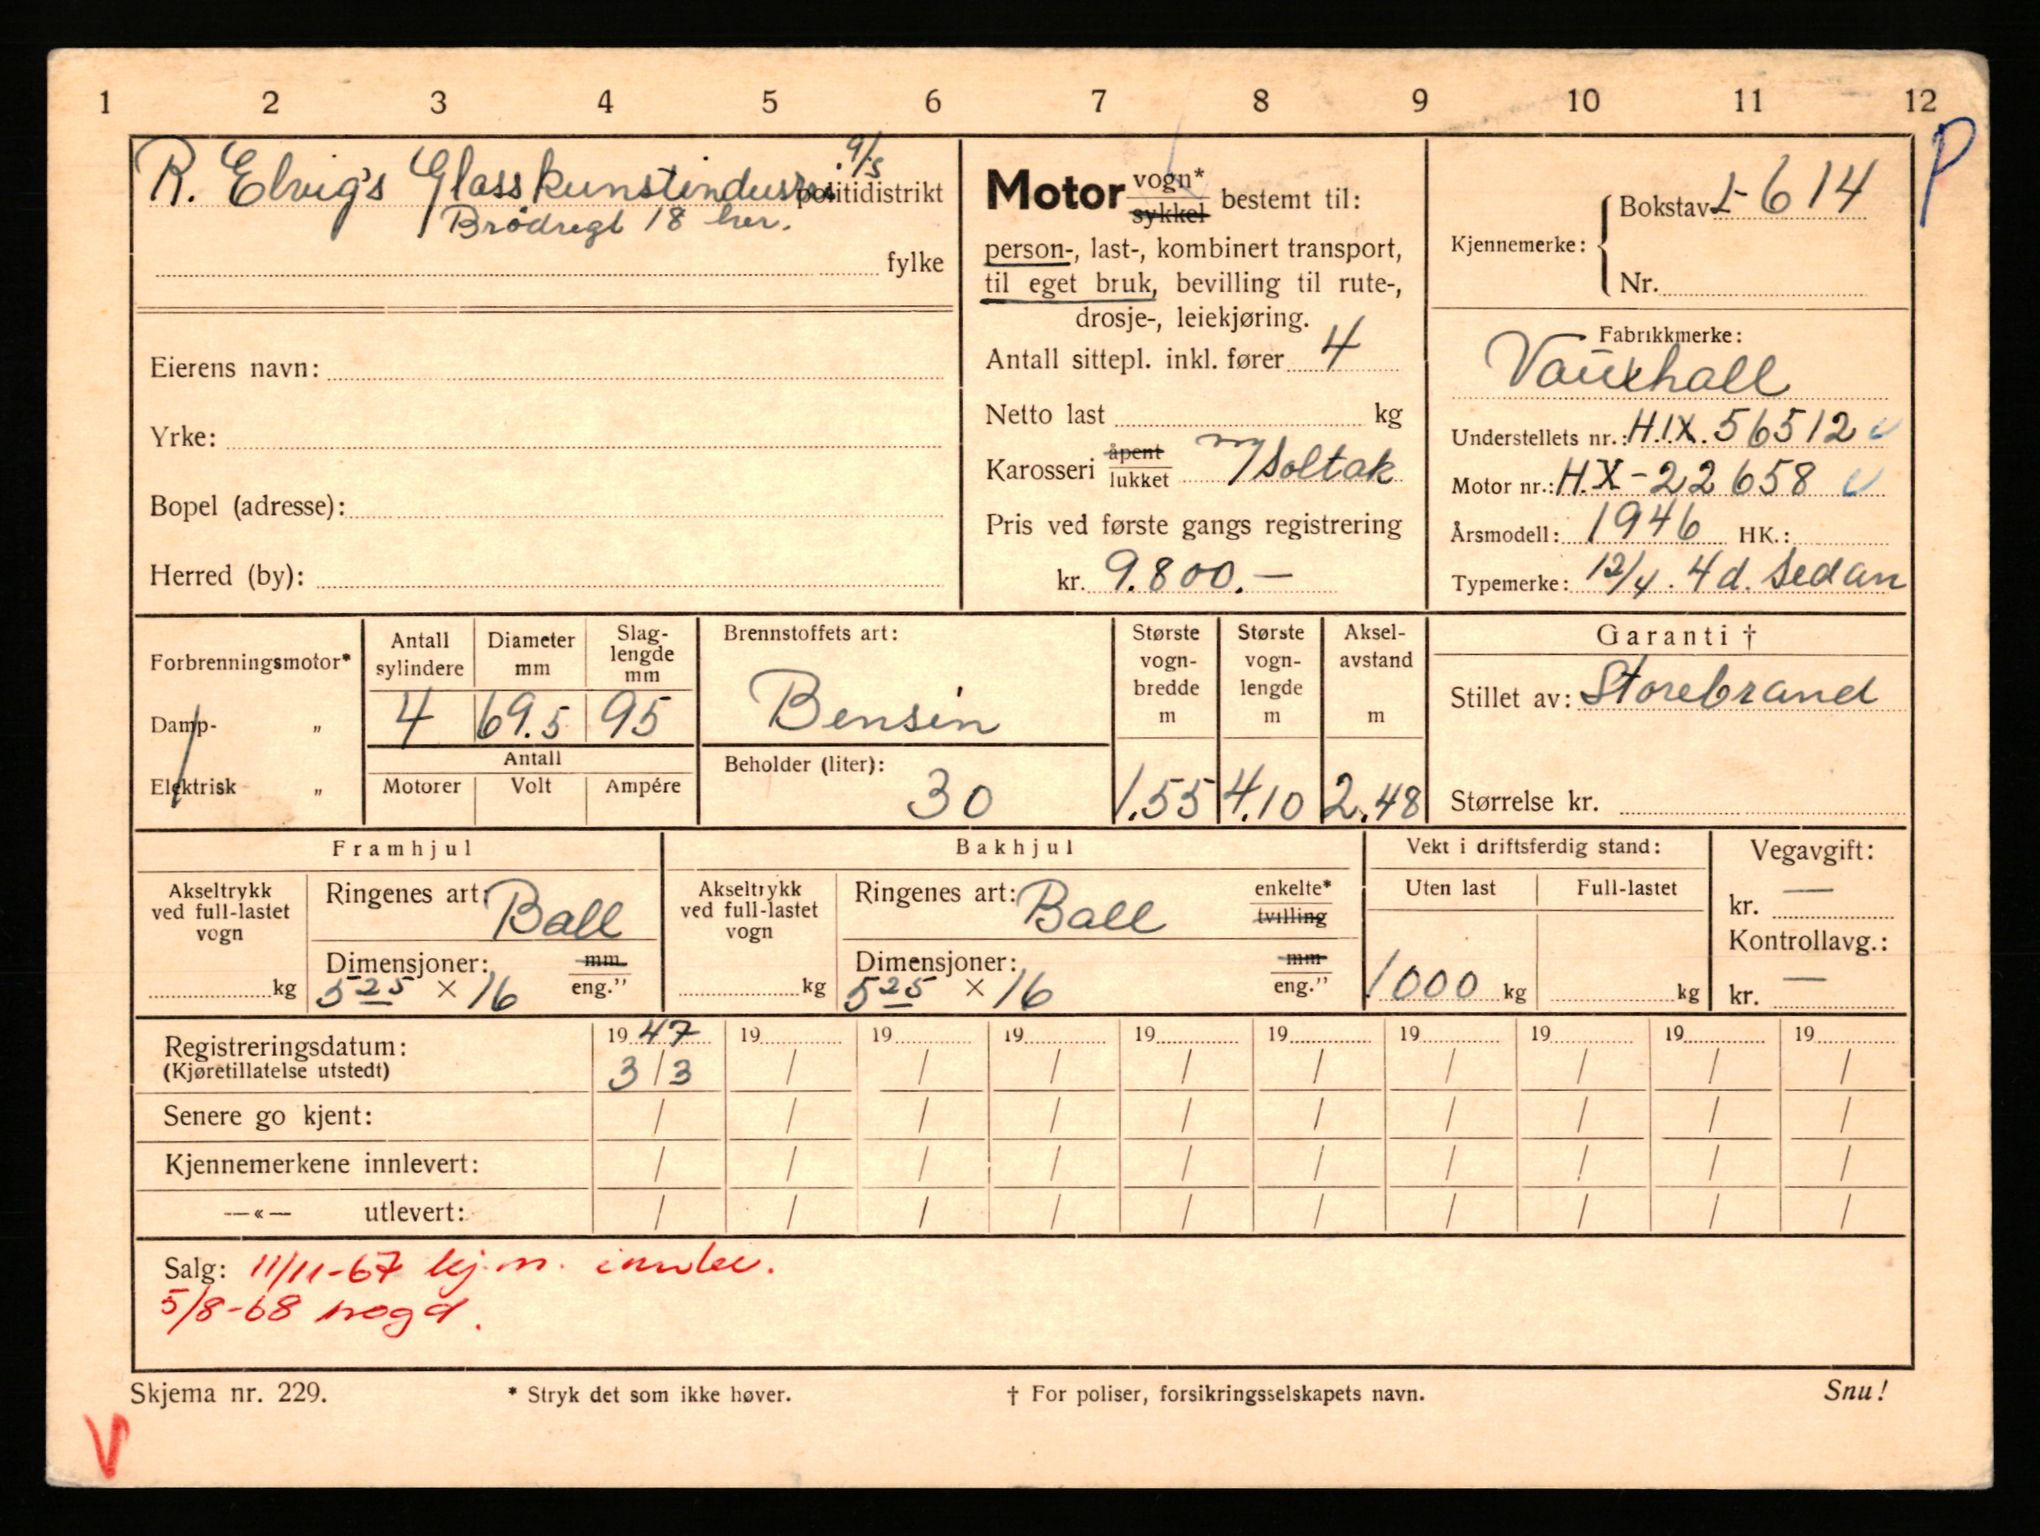 1 2 3 4 5 6 7 8 9 10 11 12
P
R. Elvig's Glasskunstindustri a/s politidistrikt
Brødregt 18 her.
fylke
Eierens navn:
Yrke:
Bopel (adresse):
Herred (by):
Motor vogn* sykkel bestemt til:
person-, last-, kombinert transport,
til eget bruk, bevilling til rute-,
drosje-, leiekjøring.
Antall sittepl. inkl. fører 4
Netto last kg
Karosseri åpent lukket m/soltak
Pris ved første gangs registrering
kr. 9.800.—
Kjennemerke: Bokstav L-614
Nr.
Fabrikkmerke:
Vauxhall
Understellets nr.: H.I.X. 56512
Motor nr.: H.X-22658
Årsmodell: 1946 HK.:
Typemerke: 12/4. 4d. Sedan
Forbrenningsmotor*
Damp- „
Elektrisk „
Antall sylindere Diameter mm Slag-lengde mm
4 69.5 95
Antall
Motorer Volt Ampére
Brennstoffets art:
Bensin
Beholder (liter):
30
Største vogn-bredde m Største vogn-lengde m Aksel-avstand m
1.55 4.10 2.48
Garanti †
Stillet av: Storebrand
Størrelse kr.
Framhjul
Akseltrykk ved full-lastet vogn
kg
Ringenes art: Ball
Dimensjoner: mm
525 × 16 eng.”
Bakhjul
Akseltrykk ved full-lastet vogn
kg
Ringenes art: Ball enkelte* tvilling
Dimensjoner: mm
525 × 16 eng.”
Vekt i driftsferdig stand:
Uten last Full-lastet
1000 kg kg
Vegavgift:
kr. —
Kontrollavg.:
kr. —
Registreringsdatum: 19 47 19 19 19 19 19 19 19 19 19
(Kjøretillatelse utstedt) 3/3 / / / / / / / / /
Senere go kjent: / / / / / / / / / /
Kjennemerkene innlevert: / / / / / / / / / /
—«— utlevert: / / / / / / / / / /
Salg: 11/11-67 kj.m. innlev.
5/8-68 hogd.
Skjema nr. 229. * Stryk det som ikke høver. † For poliser, forsikringsselskapets navn. Snu!
V